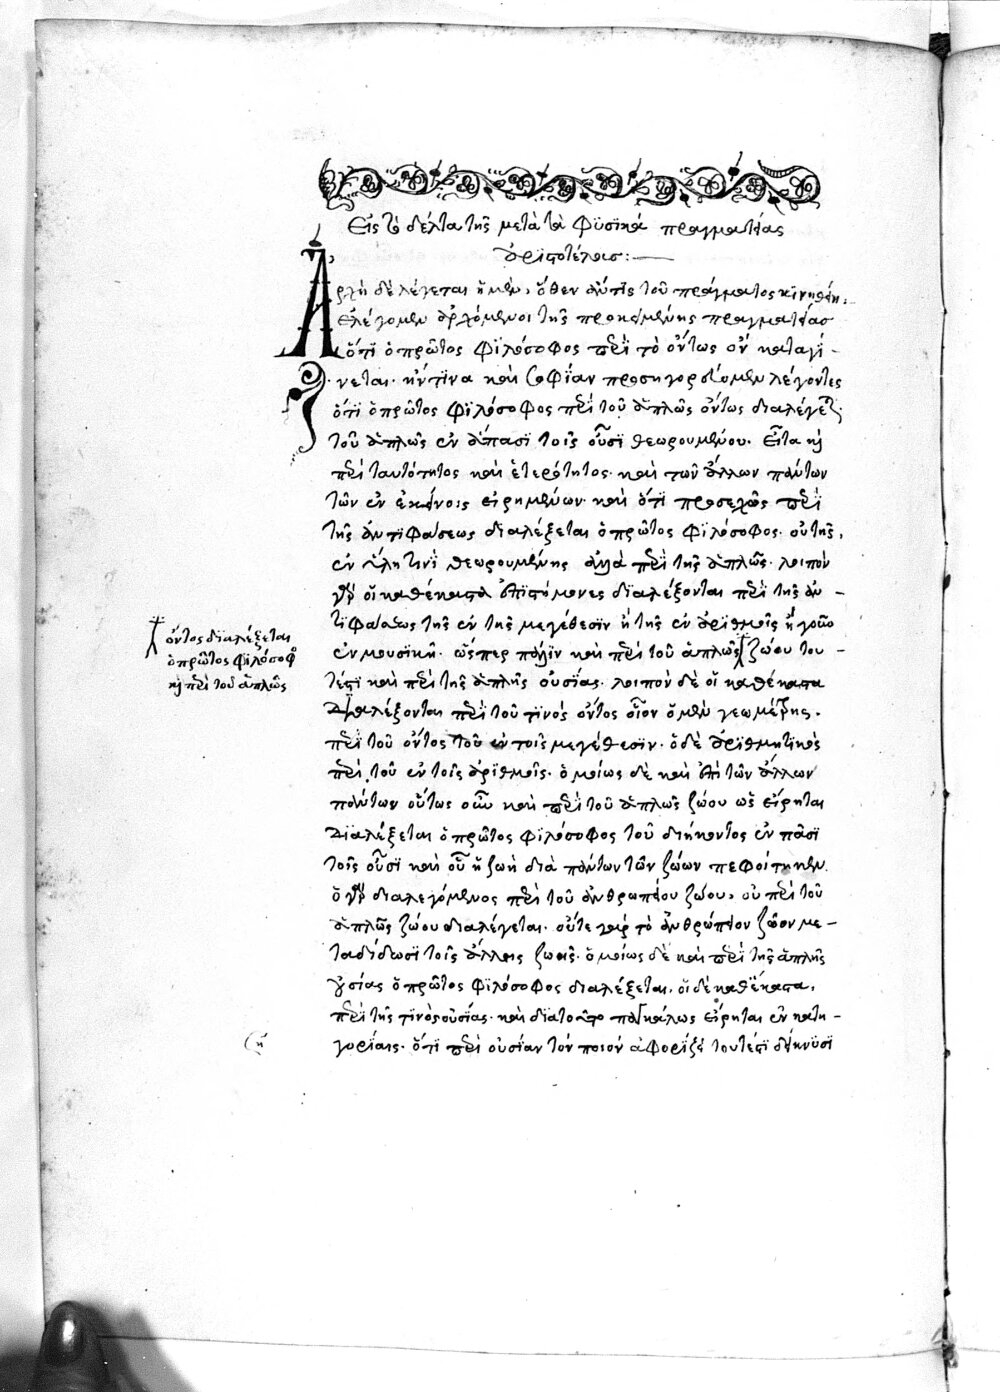 Εἰς τὸ δέλτα τῆς μετὰ τὰ φϋσϊκά πραγματείας
ἀριστοτέλους :—
Ἀρχὴ δὲ λέγεται ἡ μὲν, ὅθεν ἄν τις τοῦ πράγματος κινηθείη:
ἐλέγομεν ἀρχόμενοι τῆς προκειμένης πραγματείας
ὅτϊ ὁ πρῶτος φϊλόσοφος περὶ τὸ ὄντως ὂν καταγί-
νεται. ἥντϊνα καὶ σοφίαν προσηγορεύομεν λέγοντες
ὅτϊ ὁ πρῶτος φϊλόσοφος περὶ τοῦ ἁπλῶς ὄντως διαλέγεται.
τοῦ ἁπλῶς ἐν ἅπασϊ τοῖς οὖσϊ θεωρουμένου. Εἶτα καὶ
περὶ ταυτότητος καὶ ἑτερότητος. καὶ τῶν ἄλλων πάντων
τῶν ἐν ἐκείνοις εἰρημένων. καὶ ὅτϊ προσεχῶς περὶ
τῆς ἀντϊφάσεως διαλέξεται ὁ πρῶτος φϊλόσοφος. οὐ τῆς,
ἐν ὕλη τινῒ θεωρουμένης ἀλλὰ περὶ τῆς ἁπλῶς. λοιπὸν
γὰρ οἱ καθέκαστα ἐπιστήμονες δϊαλέξονται περὶ τῆς ἀν-
τϊφάσεως τῆς ἐν τῆς μεγέθεσϊν ἢ τῆς ἐν ἀριθμοῖς ἢ γοῦν
ἐν μουσϊκῆ. ὥσπερ πάλϊν καὶ περὶ τοῦ ἁπλῶς ζώου του-
τέστϊ καὶ περὶ τῆς ἁπλῆς οὐσίας. λοιπὸν δὲ οἱ καθέκαστα
διαλέξονται περὶ τοῦ τϊνὸς ὄντος οἷον ὁ μὲν γεωμέτρης.
περὶ τοῦ ὄντος τοῦ ἐν τοῖς μεγέθεσϊν. ὁ δὲ ἀρϊθμητϊκὸς
περὶ τοῦ ἐν τοῖς ἀρϊθμοῖς. ὁμοίως δὲ καὶ ἐπὶ τῶν ἄλλων
πάντων οὕτως οὖν καὶ περὶ τοῦ ἁπλῶς ζώου ὡς εἴρηται
δϊαλέξεται ὁ πρῶτος φϊλόσοφος τοῦ διήκοντος ἐν πᾶσϊ
τοῖς οὖσϊ καὶ οὗ ἡ ζωὴ διὰ πάντων τῶν ζώων πεφοίτηκεν.
ὁ γὰρ διαλεγόμενος περὶ τοῦ ἀνθρωπείου ζώου, οὐ περὶ τοῦ
ἁπλῶς ζώου διαλέγεται. οὔτε γὰρ τὸ ἀνθρώπειον ζῶον με-
ταδίδωσϊ τοῖς ἄλλοις ζωῆς. ὁμοίως δὲ καὶ περὶ τῆς ἁπλῆς
οὐσίας ὁ πρῶτος φϊλόσοφος διαλέξεται, οἱ δὲ καθέκαστα,
περὶ τῆς τϊνὸς οὐσίας. καὶ διὰ τοῦτο καλῶς εἴρηται ἐν κατη-
γορίαις. ὅτϊ περὶ οὐσίαν τὸν ποιὸν ἀφορίζει τουτέστϊ δείκνυσϊ
ὄντος διαλέξεται
ὁ πρῶτος φϊλόσοφος
καὶ περὶ τοῦ ἁπλῶς